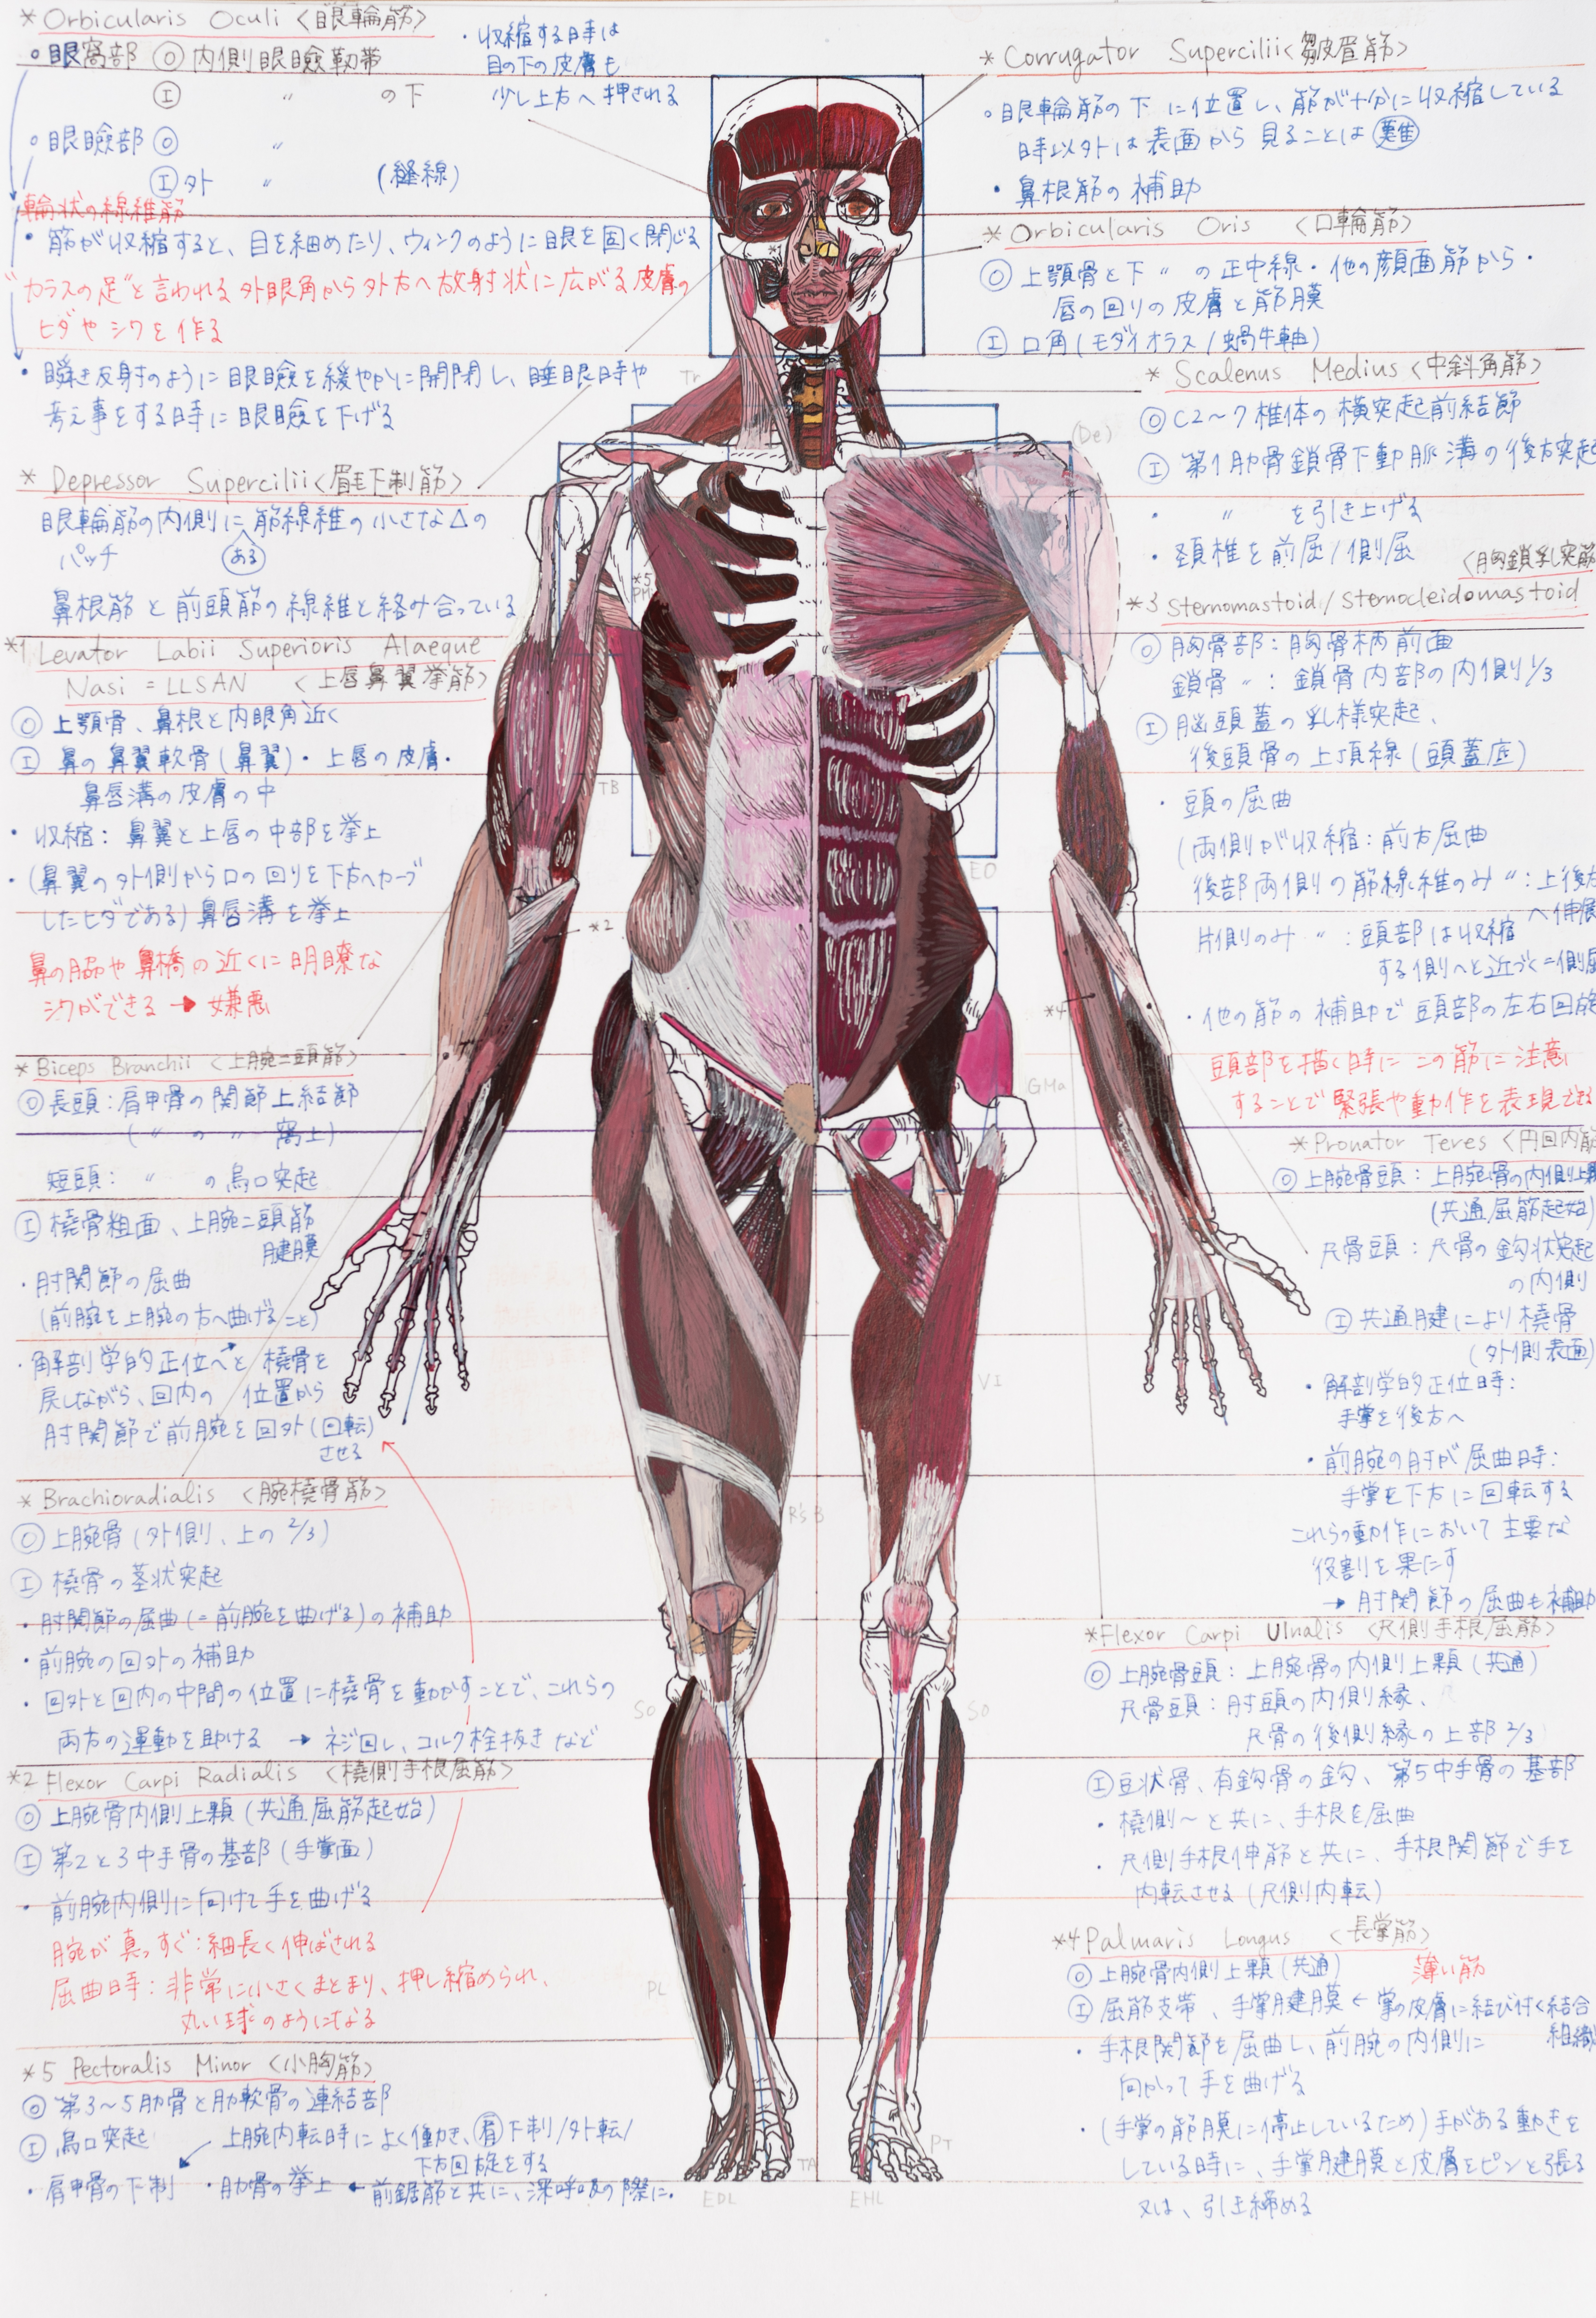 * Orbicularis Oculi <眼輪筋>
• 眼窩部 Ⓞ 内側眼瞼靭帯
Ⓘ 〃 の下
• 眼瞼部 Ⓞ 〃
Ⓘ 外 〃 (縫線)
輪状の線維筋
• 筋が収縮すると、目を細めたり、ウィンクのように眼を固く閉じる
"カラスの足"と言われる外眼角から外方へ放射状に広がる皮膚の
ヒダやシワを作る
• 瞬き反射のように眼瞼を緩やかに開閉し、睡眠時や
考え事をする時に眼瞼を下げる
• 収縮する時は
目の下の皮膚も
少し上方へ押される
* Depressor Supercilii <眉毛下制筋>
眼輪筋の内側に筋線維の小さな△の
パッチ ある
鼻根筋と前頭筋の線維と絡み合っている
*1 Levator Labii Superioris Alaeque
Nasi = LLSAN <上唇鼻翼挙筋>
Ⓞ 上顎骨、鼻根と内眼角近く
Ⓘ 鼻の鼻翼軟骨(鼻翼)・上唇の皮膚・
鼻唇溝の皮膚の中
• 収縮: 鼻翼と上唇の中部を挙上
• (鼻翼の外側から口の回りを下方へカーブ
したヒダである)鼻唇溝を挙上
鼻の脇や鼻橋の近くに明瞭な
シワができる → 嫌悪
* Biceps Branchii <上腕二頭筋>
Ⓞ 長頭: 肩甲骨の関節上結節
( 〃 の 〃 窩上)
短頭: 〃 の烏口突起
Ⓘ 橈骨粗面、上腕二頭筋
腱膜
• 肘関節の屈曲
(前腕を上腕の方へ曲げること)
• 解剖学的正位へと橈骨を
戻しながら、回内の 位置から
肘関節で前腕を回外(回転)
させる
* Brachioradialis <腕橈骨筋>
Ⓞ 上腕骨(外側、上の 2/3)
Ⓘ 橈骨の茎状突起
• 肘関節の屈曲(=前腕を曲げる)の補助
• 前腕の回外の補助
• 回外と回内の中間の位置に橈骨を動かすことで、これらの
両方の運動を助ける → ネジ回し、コルク栓抜きなど
*2 Flexor Carpi Radialis <橈側手根屈筋>
Ⓞ 上腕骨内側上顆(共通屈筋起始)
Ⓘ 第2と3中手骨の基部(手掌面)
• 前腕内側に向けて手を曲げる
腕が真っすぐ: 細長く伸ばされる
屈曲時: 非常に小さくまとまり、押し縮められ、
丸い球のようになる
*5 Pectoralis Minor <小胸筋>
Ⓞ 第3〜5肋骨と肋軟骨の連結部
Ⓘ 烏口突起
上腕内転時によく働き、肩下制/外転/
下方回旋をする
• 肩甲骨の下制 • 肋骨の挙上 ← 前鋸筋と共に、深呼吸の際に。
* Corrugator Supercilii <皺眉筋>
• 眼輪筋の下に位置し、筋が十分に収縮している
時以外は表面から見ることは難
• 鼻根筋の補助
* Orbicularis Oris <口輪筋>
Ⓞ 上顎骨と下 〃 の正中線・他の顔面筋から・
唇の回りの皮膚と筋膜
Ⓘ 口角(モダイオラス/蝸牛軸)
* Scalenus Medius <中斜角筋>
Ⓞ C2〜7椎体の横突起前結節
Ⓘ 第1肋骨鎖骨下動脈溝の後方突起
• 〃 を引き上げる
• 頚椎を前屈/側屈
<胸鎖乳突筋
*3 Sternomastoid/Sternocleidomastoid
Ⓞ 胸骨部: 胸骨柄前面
鎖骨 〃: 鎖骨内部の内側1/3
Ⓘ 脳頭蓋の乳様突起、
後頭骨の上項線(頭蓋底)
• 頭の屈曲
(両側が収縮: 前方屈曲
後部両側の筋線維のみ 〃: 上後方
へ伸展
片側のみ 〃: 頭部は収縮
する側へと近づく=側屈
• 他の筋の補助で頭部の左右回旋
頭部を描く時にこの筋に注意
することで緊張や動作を表現できる
* Pronator Teres <円回内筋
Ⓞ 上腕骨頭: 上腕骨の内側上顆
(共通屈筋起始)
尺骨頭: 尺骨の鈎状突起
の内側
Ⓘ 共通腱により橈骨
(外側表面)
• 解剖学的正位時:
手掌を後方へ
• 前腕の肘が屈曲時:
手掌を下方に回転する
これらの動作において主要な
役割を果たす
→ 肘関節の屈曲も補助
* Flexor Carpi Ulnalis <尺側手根屈筋>
Ⓞ 上腕骨頭: 上腕骨の内側上顆(共通)
尺骨頭: 肘頭の内側縁、
尺骨の後側縁の上部 2/3
Ⓘ 豆状骨、有鈎骨の鈎、第5中手骨の基部
• 橈側〜と共に、手根を屈曲
• 尺側手根伸筋と共に、手根関節で手を
内転させる(尺側内転)
*4 Palmaris Longus <長掌筋>
Ⓞ 上腕骨内側上顆(共通) 薄い筋
Ⓘ 屈筋支帯、手掌腱膜 ← 掌の皮膚に結び付く結合
組織
• 手根関節を屈曲し、前腕の内側に
向かって手を曲げる
• (手掌の筋膜に停止しているため)手がある動きを
している時に、手掌腱膜と皮膚をピンと張る
又は、引き締める
Tr
(De)
*1
*5
PM
TB
EO
*2
*4
GMa
VI
R's B
SO
SO
PL
PT
TA
EDL
EHL